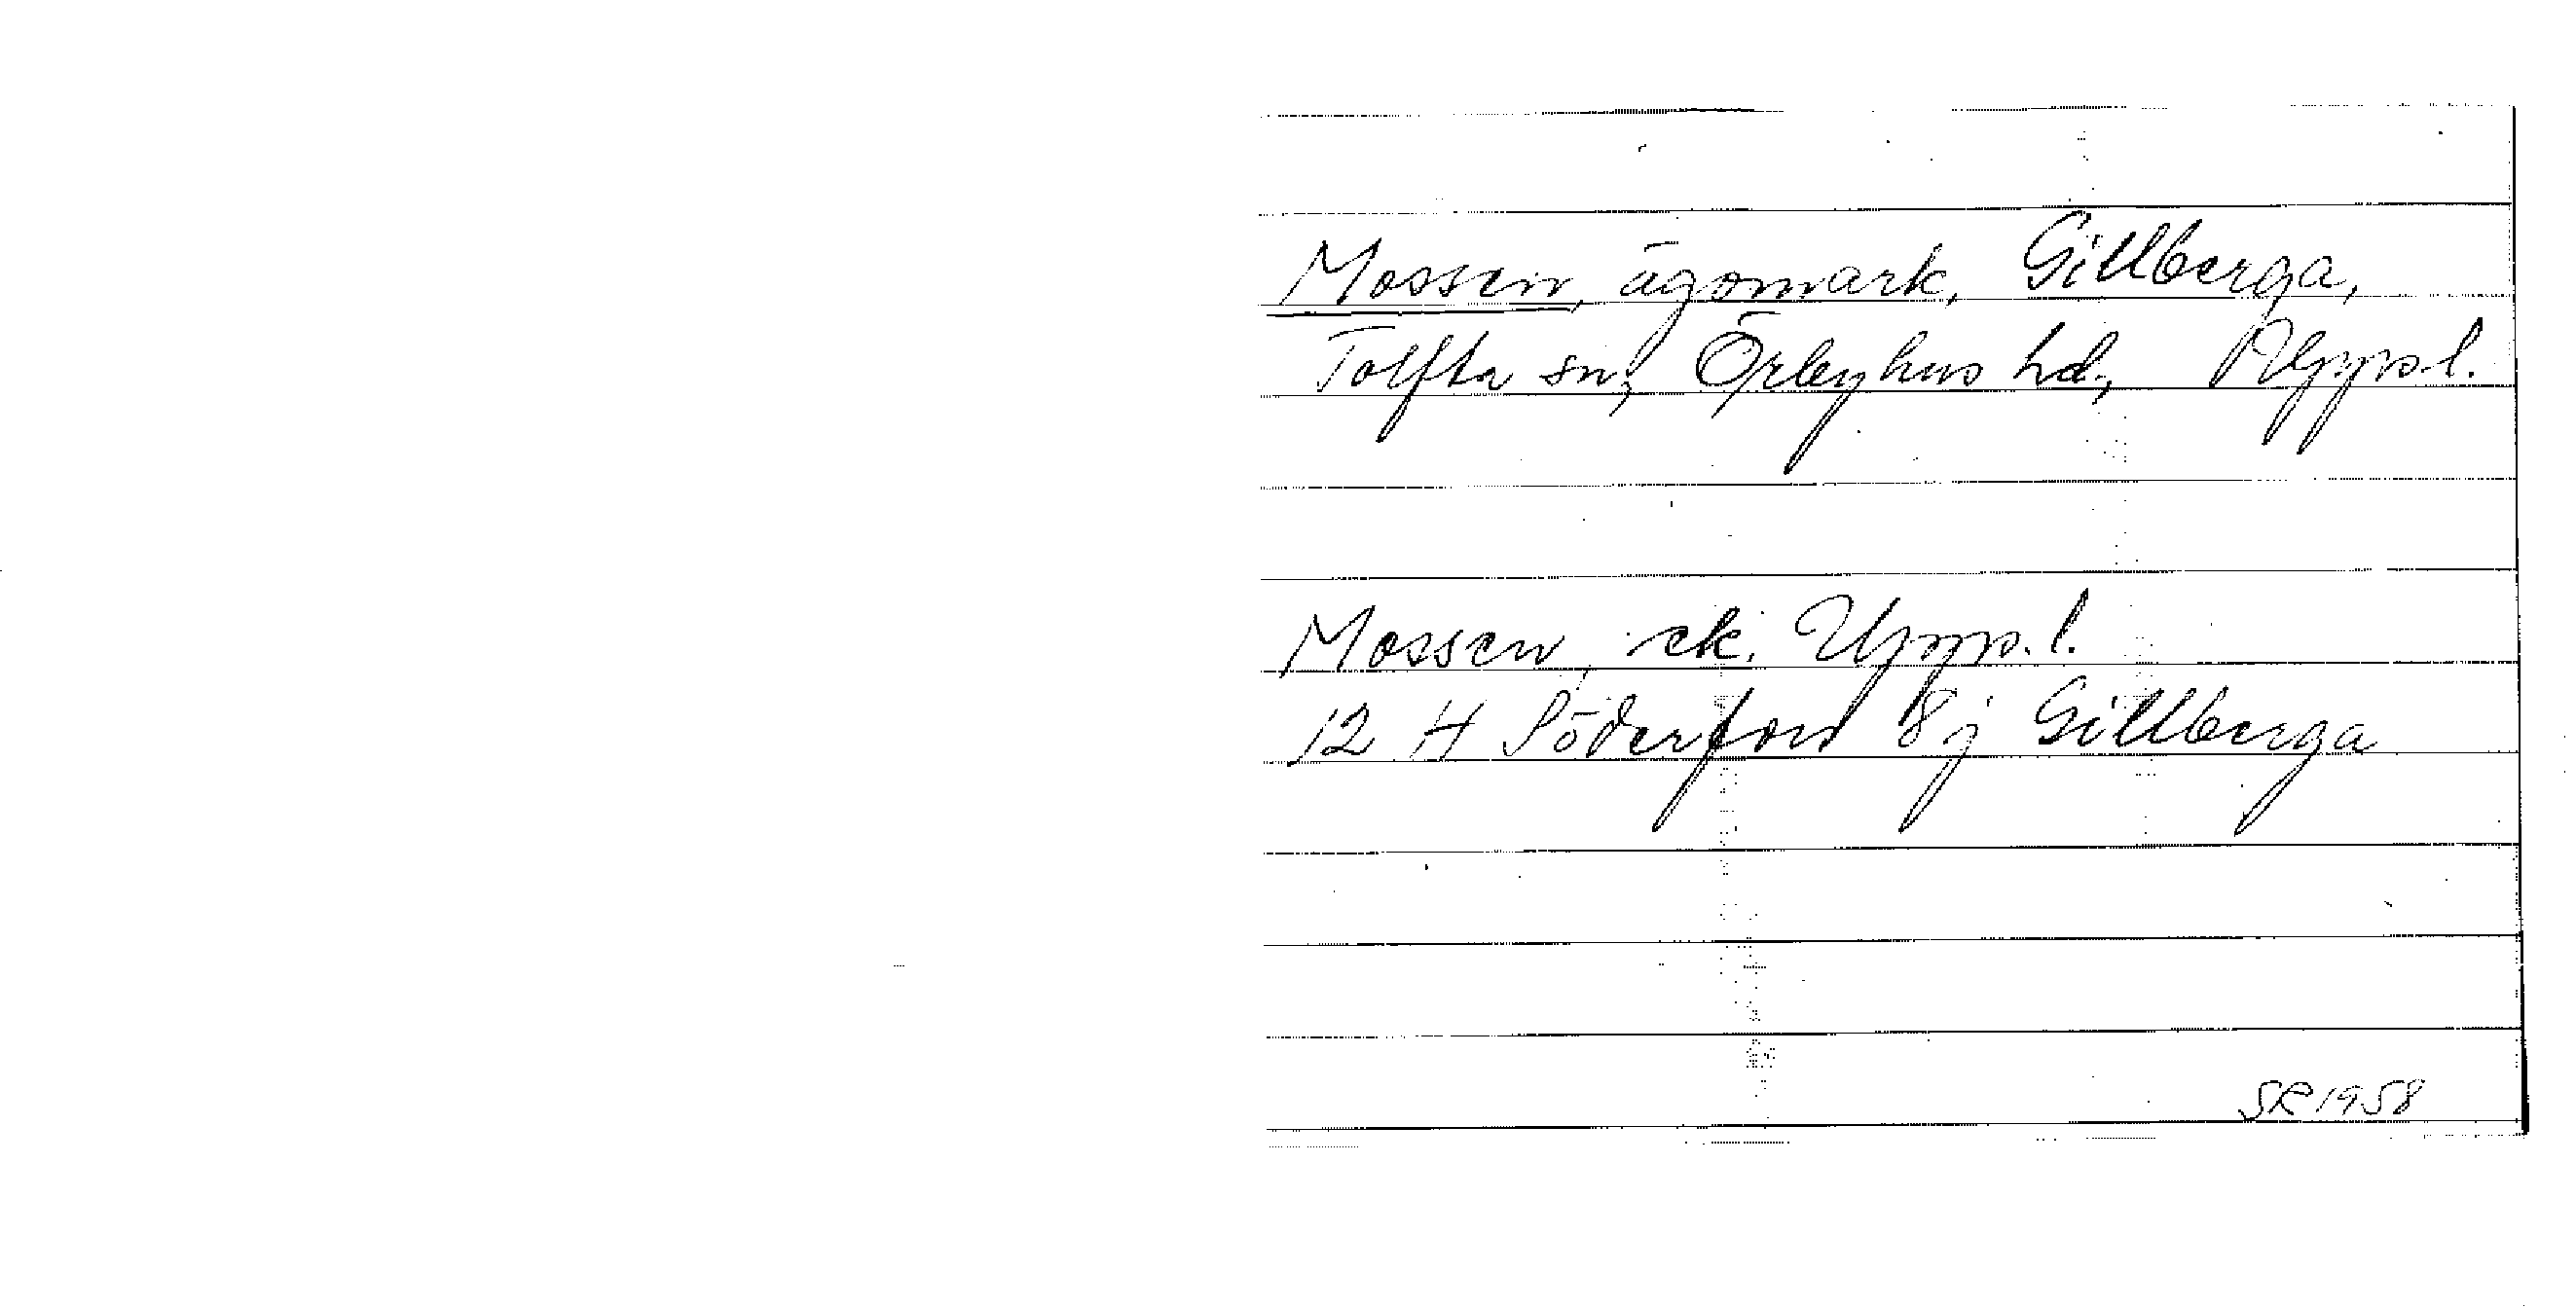 Mossen, ägomark, Gillberga,
Tolfta sn, Örbyhus hd, Uppl.
Mossen, ek. Uppl.
12 H Söderfors 8j Gillberga
SR 1958